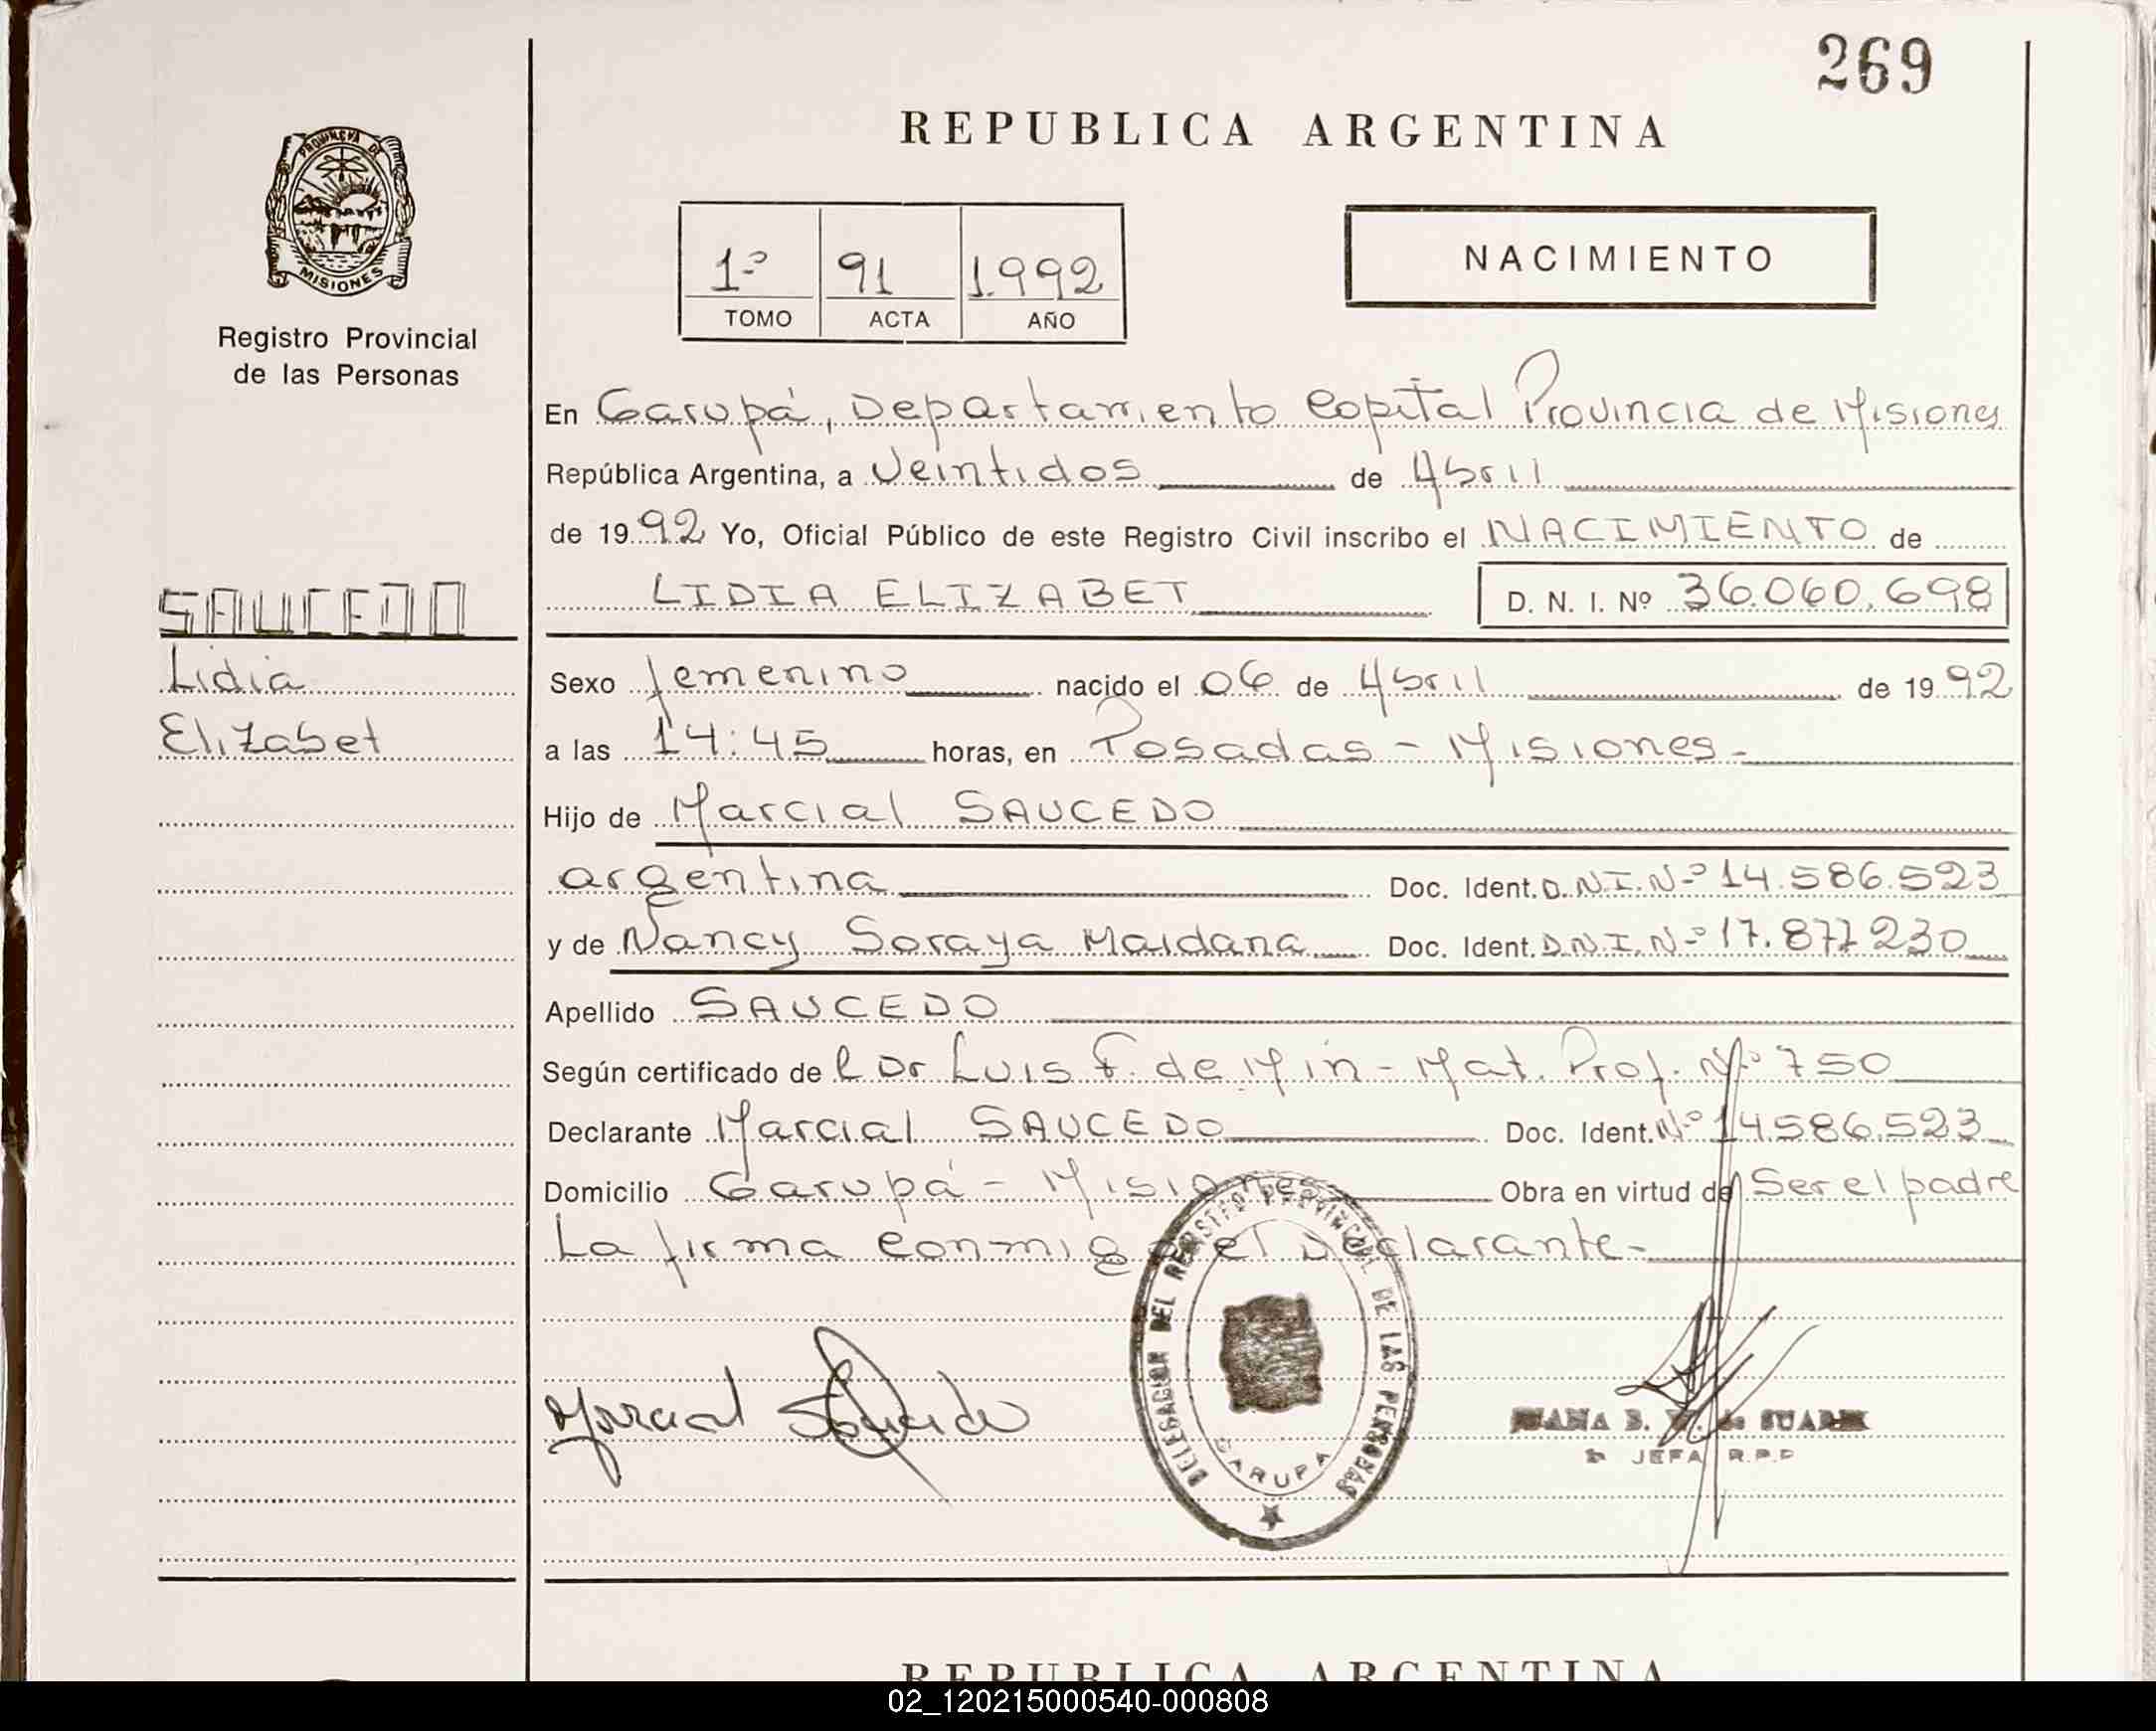 269
REPUBLICA ARGENTINA
PROVINCIA DE
MISIONES
Registro Provincial
de las Personas
1º 91 1.992
TOMO ACTA AÑO
NACIMIENTO
En Garupá, Departamento Capital Provincia de Misiones
República Argentina, a Veintidos de Abril
de 1992 Yo, Oficial Público de este Registro Civil inscribo el NACIMIENTO de
LIDIA ELIZABET D. N. I. Nº 36.060.698
SAUCEDO
Lidia
Elizabet
Sexo femenino nacido el 06 de Abril de 1992
a las 14:45 horas, en Posadas - Misiones-
Hijo de Marcial SAUCEDO
argentina Doc. Ident. D.N.I.Nº 14.586.523
y de Nancy Soraya Maidana Doc. Ident. D.N.I.Nº 17.877230
Apellido SAUCEDO
Según certificado de l Dr Luis F. de Min - Mat. Prof. Nº 750
Declarante Marcial SAUCEDO Doc. Ident. Nº 14.586.523
Domicilio Garupá - Misiones Obra en virtud de Ser el padre
La firma conmigo el Declarante-
Marcial Saucedo
DELEGACION DEL REGISTRO PROVINCIAL DE LAS PERSONAS
GARUPA
JUANA B. de SUAREZ
JEFA R.P.P
REPUBLICA ARGENTINA
02_120215000540-000808